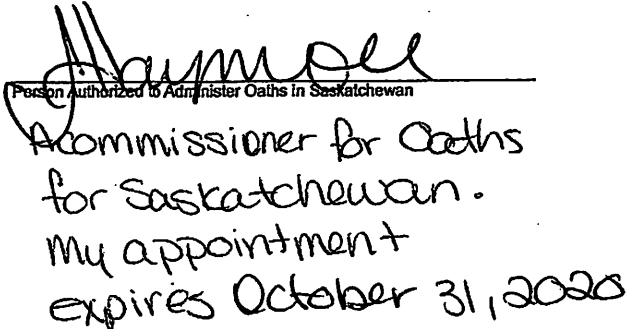 Person Authorized to Administer Oaths in Saskatchewan
A commissioner for Oaths
for Saskatchewan.
My appointment
expires October 31, 2020